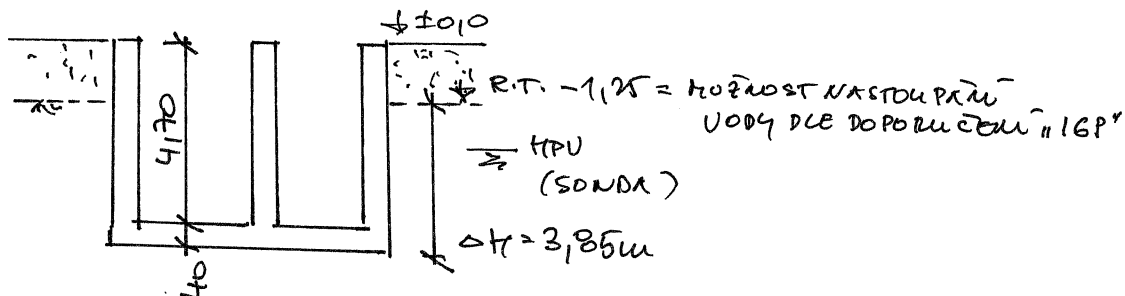 ±0,0
R.T. -1,25 = MOŽNOST NASTOUPÁNÍ
VODY DLE DOPORUČENÍ "IGP"
HPV
(SONDA)
4,70
ΔH = 3,85m
40